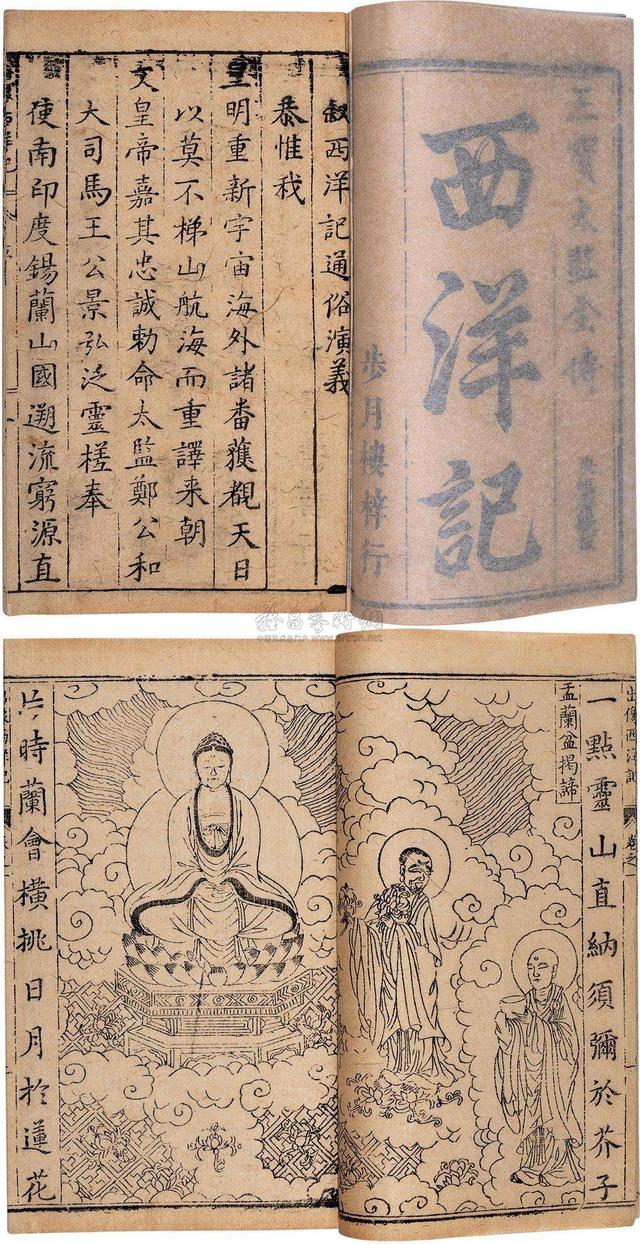 三寶太監全傳
西洋記
歩月樓梓行
叙西洋記通俗演義
恭惟我
皇明重新宇宙海外諸番獲覩天日
以莫不梯山航海而重譯来朝
文皇帝嘉其忠誠勅命太監鄭公和
大司馬王公景弘泛靈槎奉
使南印度錫蘭山國遡流窮源直
出像西洋記
卷之一
一點靈山直納須彌於芥子
盂蘭盆揭諦
片時蘭會橫挑日月於蓮花